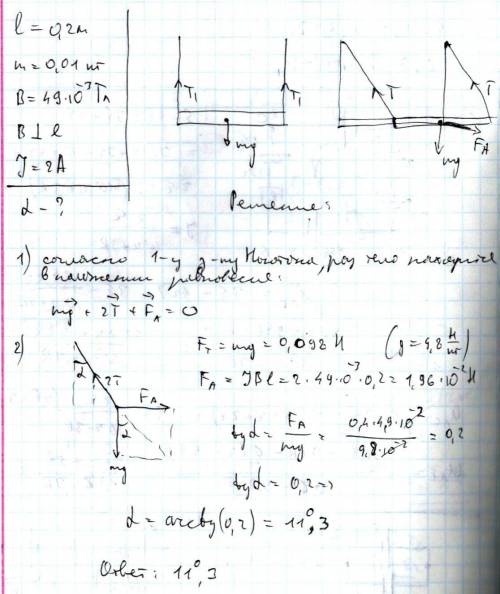 l = 0,2м
m = 0,01 кг
B = 49·10⁻³ Тл
B ⊥ l
J = 2A
α - ?
T₁ T₁
mg
T T
F_A
mg
Решение:
1) согласно 1-му з-ну Ньютона, раз тело находится
в положении равновесия:
mg⃗ + 2T⃗ + F⃗_A = 0
2)
α 2T F_A
α
mg
F_т = mg = 0,098 Н (g = 9,8 Н/кг)
F_A = JBl = 2·49·10⁻³·0,2 = 1,96·10⁻² Н
tgα = F_A/mg = 0,4·4,9·10⁻²/9,8·10⁻² = 0,2
tgα = 0,2 =>
α = arctg(0,2) = 11°,3
Ответ: 11°,3